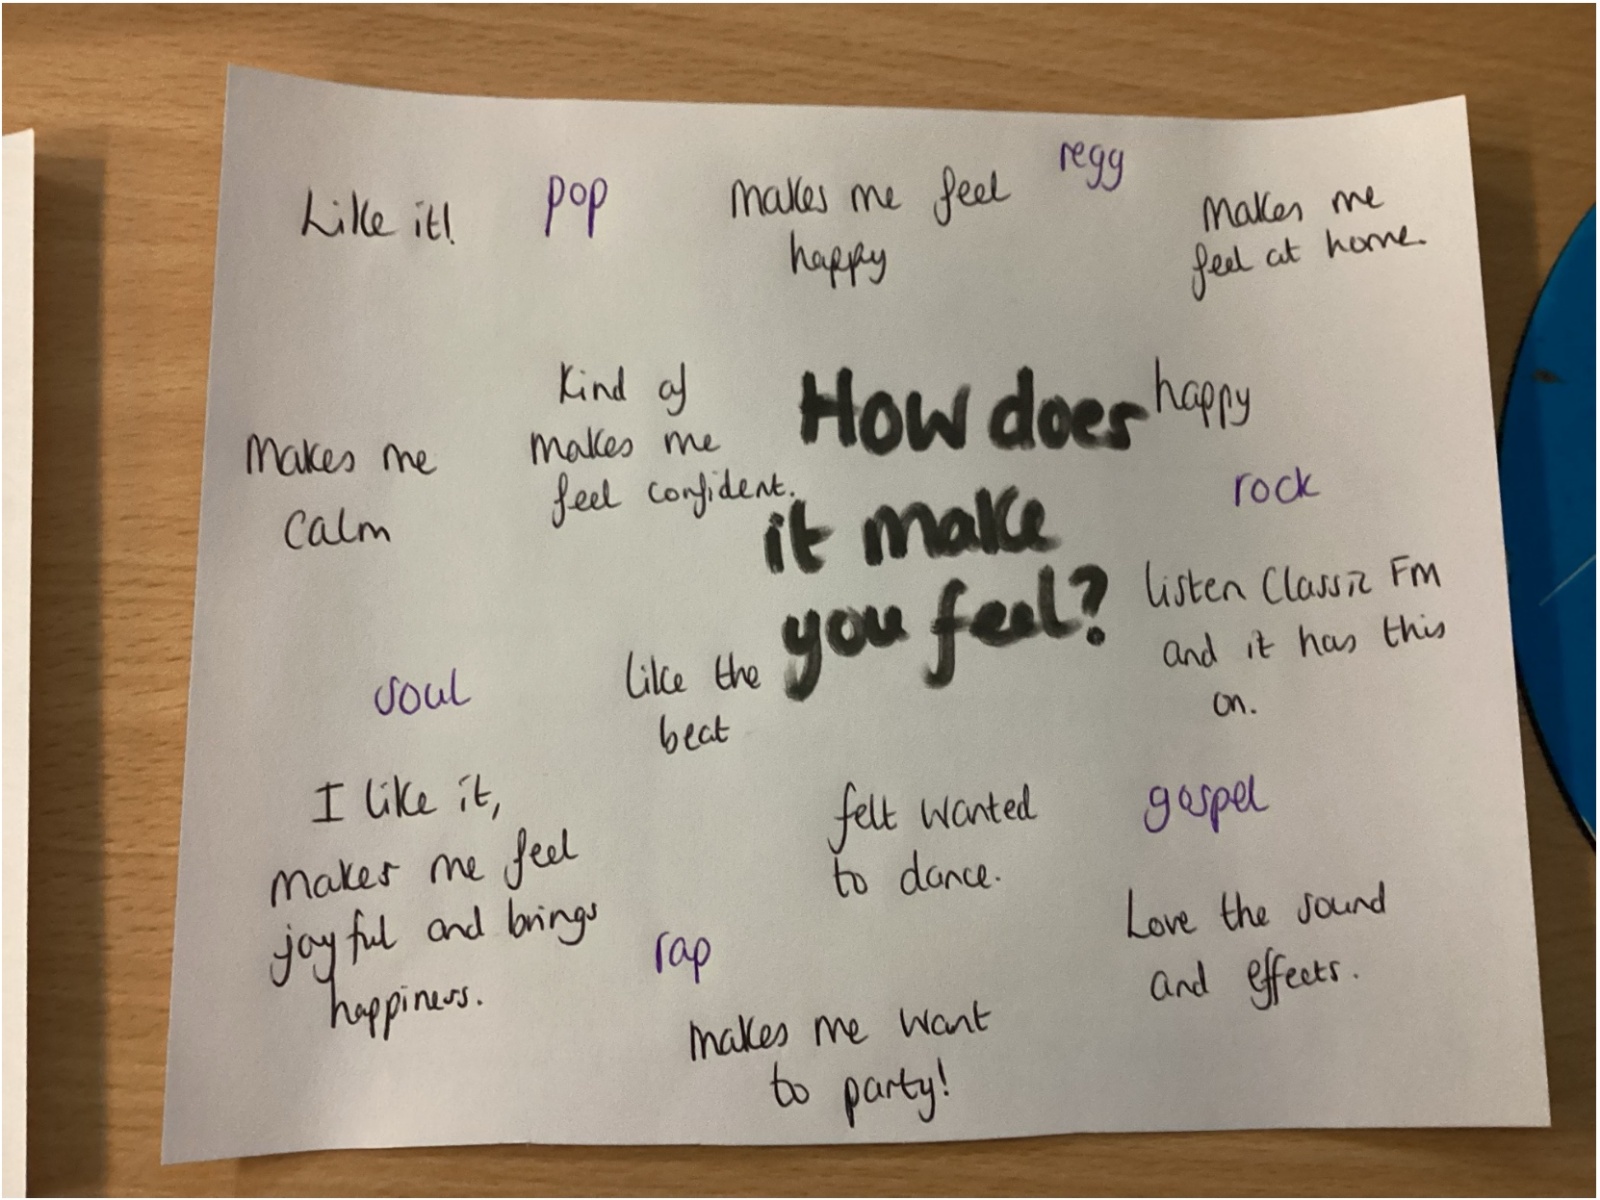 Like it!
pop
Makes me feel
happy
regg
Makes me
feel at home.
Kind of
makes me
feel confident.
Makes me
calm
How does
it make
you feel?
happy
rock
listen Classic Fm
and it has this
on.
soul
like the
beat
I like it,
makes me feel
joyful and brings
happiness.
felt wanted
to dance.
gospel
Love the sound
and effects.
rap
makes me want
to party!